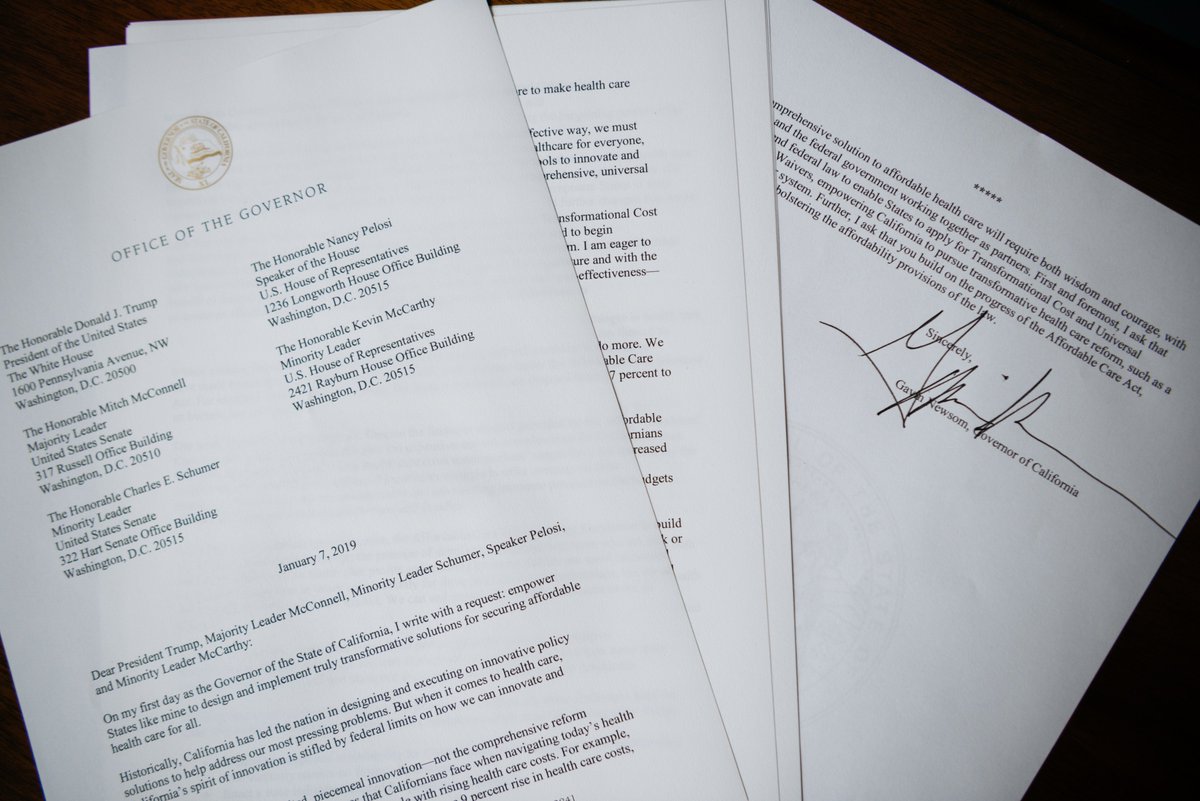 OFFICE OF THE GOVERNOR
The Honorable Donald J. Trump
President of the United States
The White House
1600 Pennsylvania Avenue, NW
Washington, D.C. 20500
The Honorable Mitch McConnell
Majority Leader
United States Senate
317 Russell Office Building
Washington, D.C. 20510
The Honorable Charles E. Schumer
Minority Leader
United States Senate
322 Hart Senate Office Building
Washington, D.C. 20515
The Honorable Nancy Pelosi
Speaker of the House
U.S. House of Representatives
1236 Longworth House Office Building
Washington, D.C. 20515
The Honorable Kevin McCarthy
Minority Leader
U.S. House of Representatives
2421 Rayburn House Office Building
Washington, D.C. 20515
January 7, 2019
Dear President Trump, Majority Leader McConnell, Minority Leader Schumer, Speaker Pelosi,
and Minority Leader McCarthy:
On my first day as the Governor of the State of California, I write with a request: empower
States like mine to design and implement truly transformative solutions for securing affordable
health care for all.
Historically, California has led the nation in designing and executing on innovative policy
solutions to help address our most pressing problems. But when it comes to health care,
California's spirit of innovation is stifled by federal limits on how we can innovate and
piecemeal innovation—not the comprehensive reform
that Californians face when navigating today's health
with rising health care costs. For example,
9 percent rise in health care costs,
re to make health care
fective way, we must
althcare for everyone,
ools to innovate and
rehensive, universal
nsformational Cost
d to begin
m. I am eager to
ure and with the
-effectiveness—
do more. We
able Care
7 percent to
ordable
ornians
reased
udgets
build
k or
*****
mprehensive solution to affordable health care will require both wisdom and courage, with
and the federal government working together as partners. First and foremost, I ask that
nd federal law to enable States to apply for Transformational Cost and Universal
Waivers, empowering California to pursue transformative health care reform, such as a
system. Further, I ask that you build on the progress of the Affordable Care Act,
bolstering the affordability provisions of the law.
Sincerely,
Gavin Newsom, Governor of California